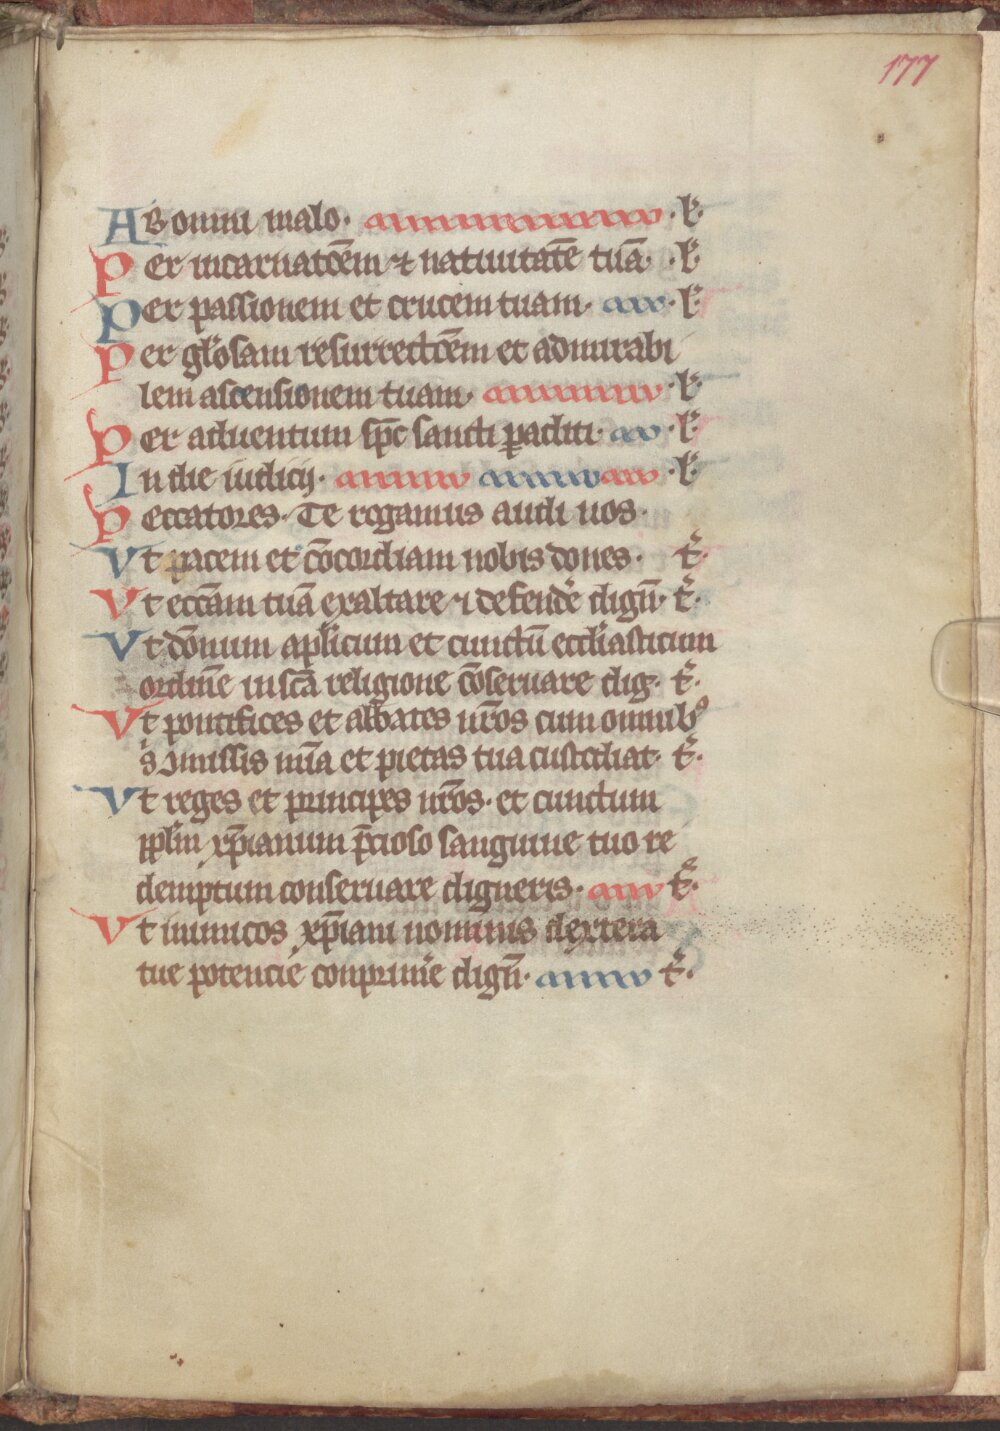 177
AB omni malo. l'.
Per incarnatōem ⁊ natiuitatē tuā. l'.
Per passionem et crucem tuam. l'.
Per gl'osam resurrectōem et admirabi
lem ascensionem tuam. l'.
Per aduentum sp̄c sancti paracliti. l'.
In die iudicij. l'.
Peccatores. Te rogamus audi nos.
Vt pacem et cōcordiam nobis dones. t'.
Vt eccām tuā exaltare ⁊ defend'e dign̄. t'.
Vt dōnum ap'licum et cunctū eccl'iasticum
ordinē in scā religione cōseruare dig. t'.
Vt pontifices et abbates nr̄os cum omnib⁹
s' 9missis nr̄a et pietas tua custodiat. t'.
Vt reges et principes nr̄os. et cunctum
ppl'm xp̄ianum p̄cioso sanguine tuo re
demptum conseruare digneris. t'.
Vt inimicos xp̄iani nominis dextera
tue potencie conprim'e dign̄. t'.